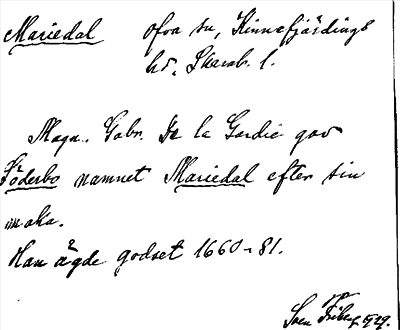 Mariedal Ofva sn, Kinnefjärdings
hd, Skarab. l.
Magn. Gabr. De la Gardie gav
Söderbo namnet Mariedal efter sin
maka.
Han ägde godset 1660-81.
Sven Friberg 1929.